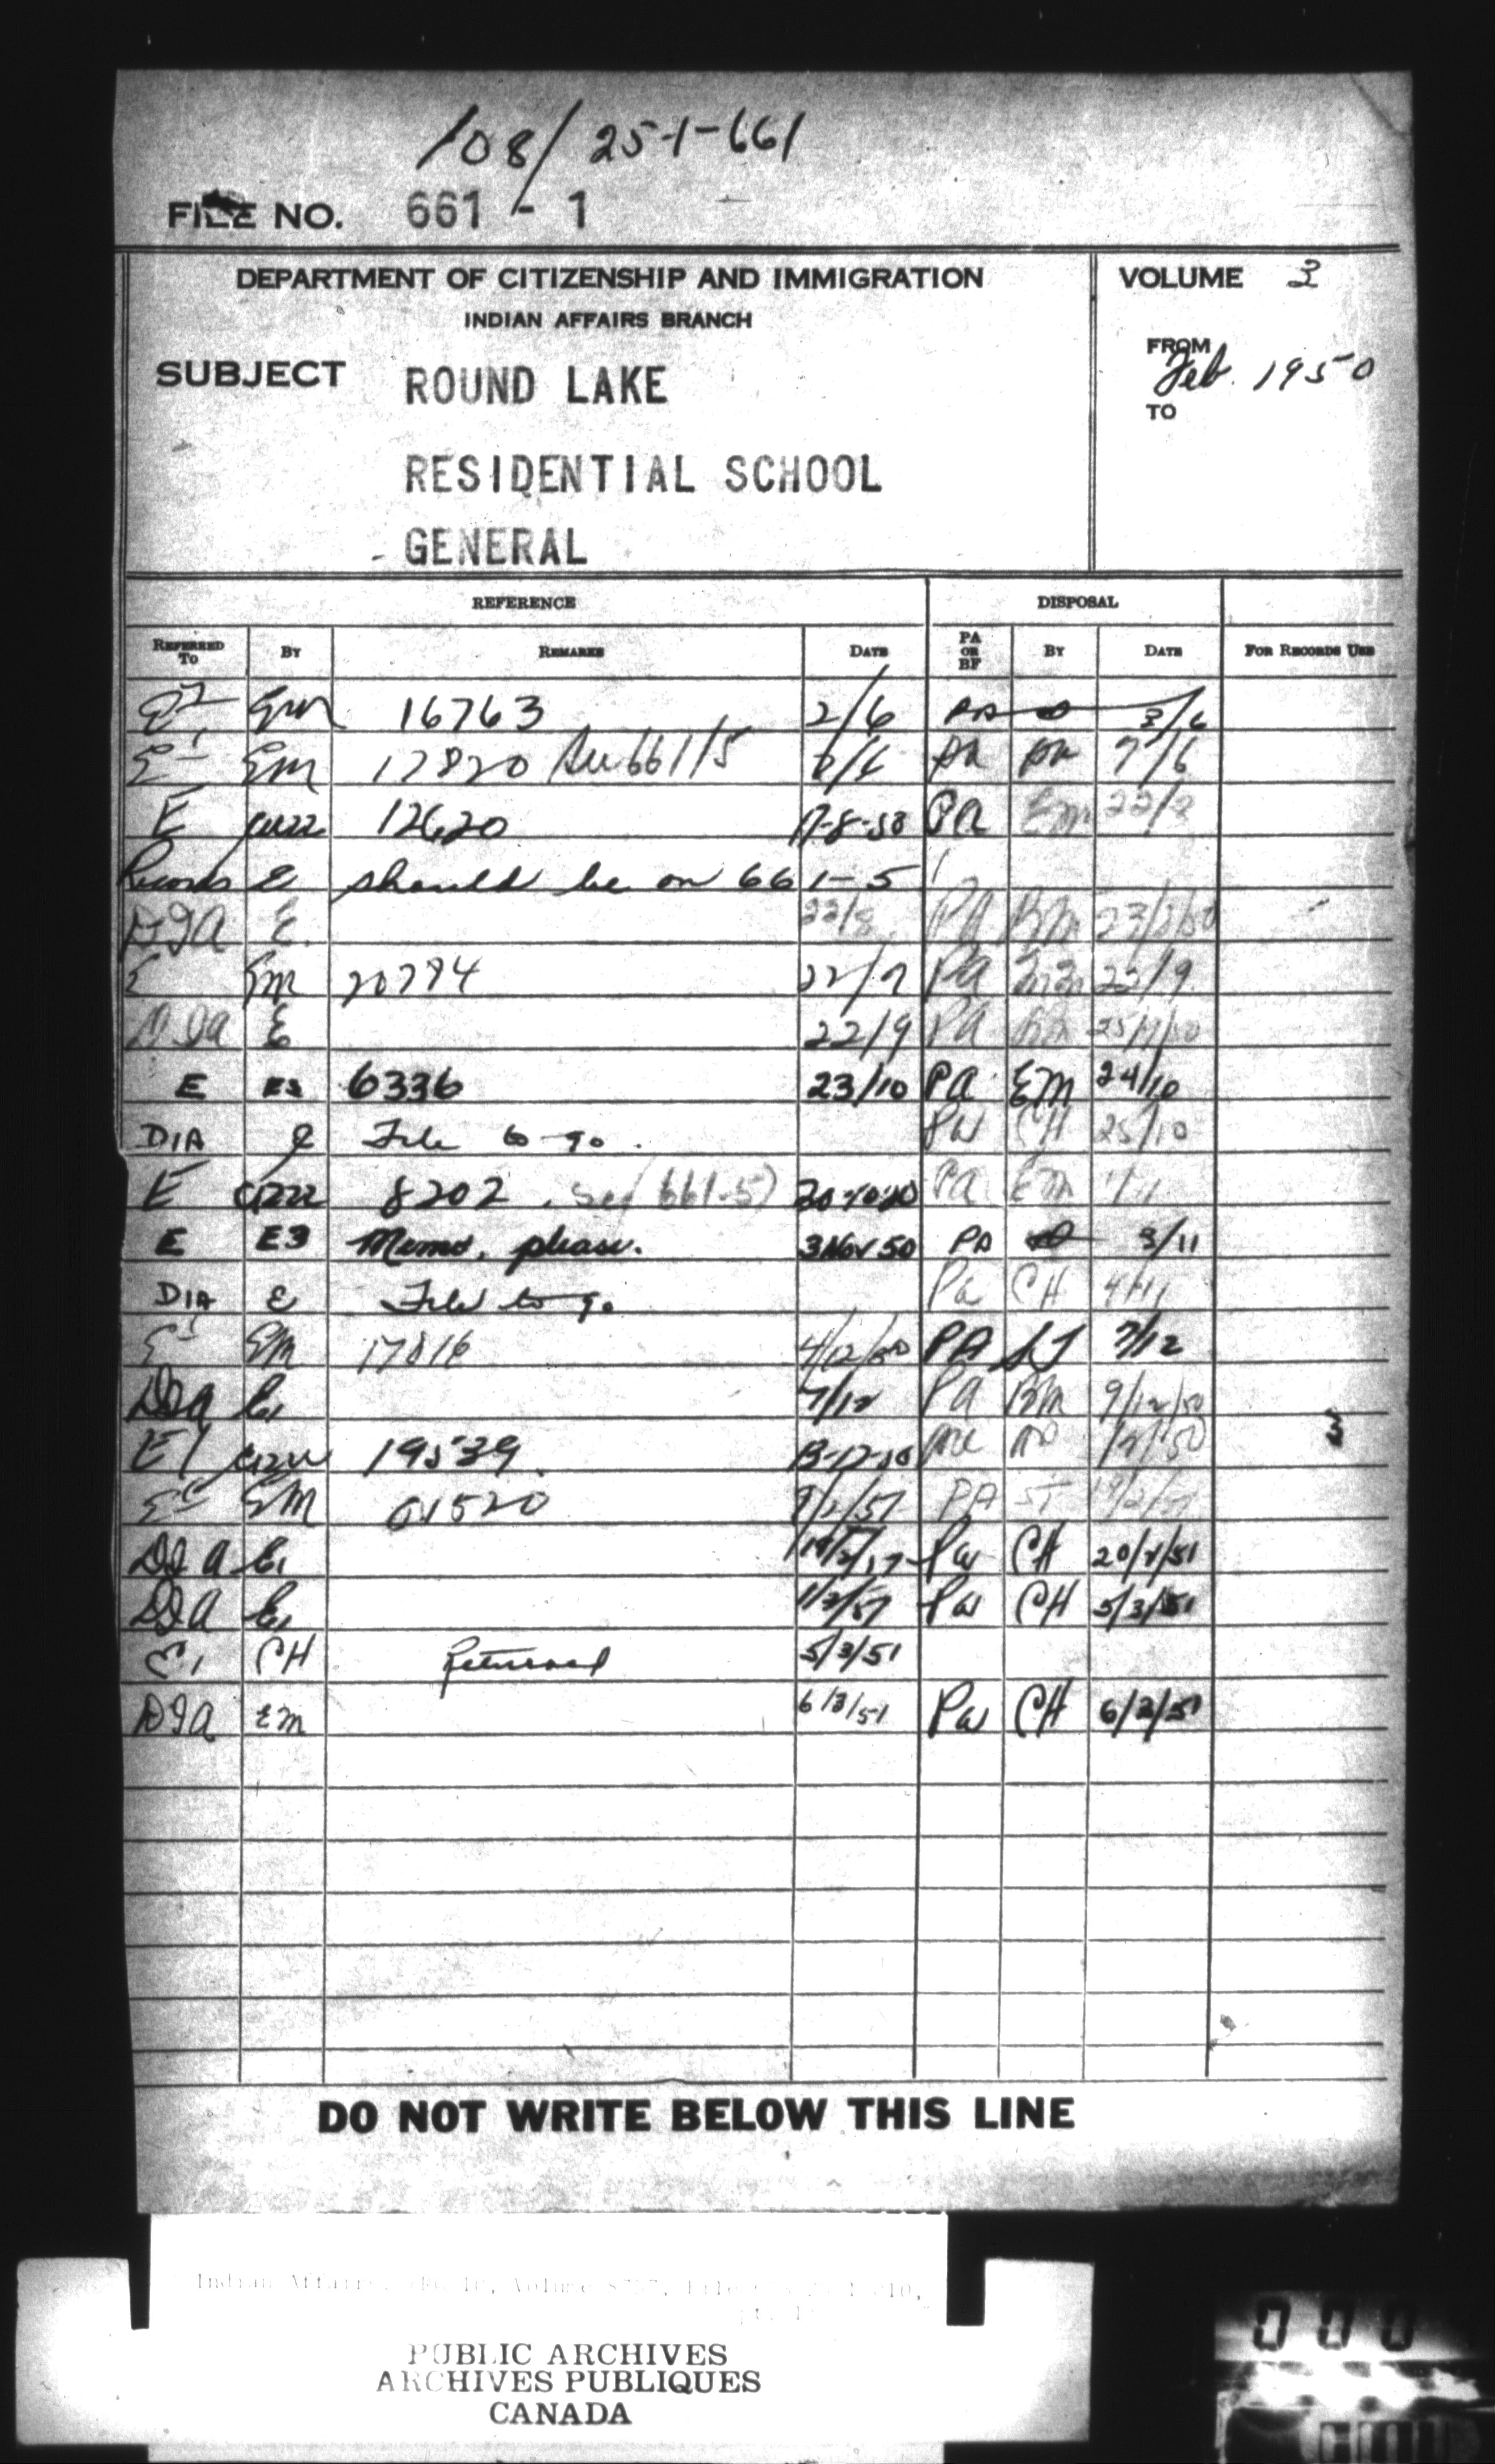 108/25-1-661
FILE NO. 661 - 1
DEPARTMENT OF CITIZENSHIP AND IMMIGRATION
INDIAN AFFAIRS BRANCH
VOLUME 3
FROM Feb. 1950
TO
SUBJECT ROUND LAKE
RESIDENTIAL SCHOOL
- GENERAL
REFERENCE DISPOSAL
REFERRED TO BY REMARKS DATE PA OR BF BY DATE FOR RECORDS USE
Em 16763 2/6 PA 3/6
E1 Em 17820 661/5 PA 7/6
E 12620 17-8-50 PA Em 22/8
Records E should be on 661-5
DIA E. 22/8 PA BM 23/8/50
E Em 20794 22/9 PA 22/9
DIA E 22/9 PA 25/9/50
E E3 6336 23/10 PA EM 24/10
DIA E File to go. PA CH 25/10
E 8202 . See (661-5) PA EM
E E3 Memo, please. 3 Nov 50 PA 3/11
DIA E File to go PA CH 4/11
E1 EM 17816 4/12/50 PA ST 7/12
DIA E1 7/12 PA BM 9/12/50
E1 19539. 13-12-50 3
EM 01520 PA ST 19/2/51
DIA E1 PA CH 20/2/51
DIA E1 PA CH 5/3/51
E1 CH Returned 5/3/51
DIA EM 6/3/51 PA CH 6/3/51
DO NOT WRITE BELOW THIS LINE
PUBLIC ARCHIVES
ARCHIVES PUBLIQUES
CANADA
000